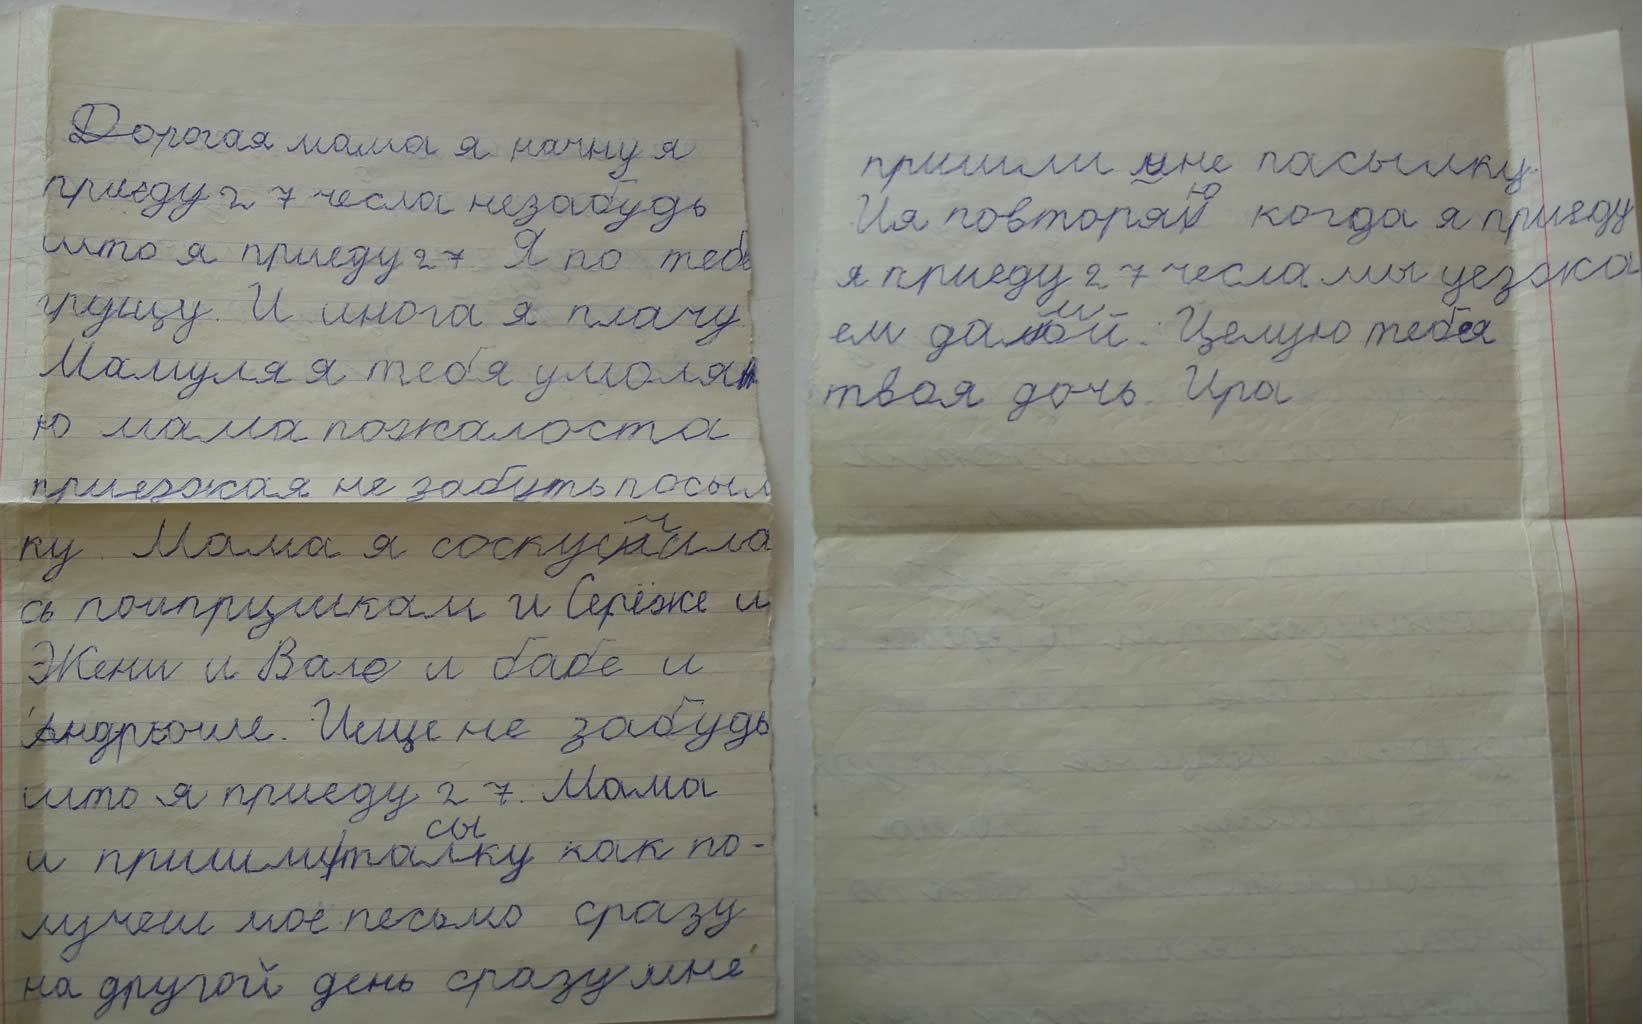 Дорогая мама я начну я
приеду 27 чесла незабудь
што я приеду 27. Я по тебе
грущу. И инога я плачу.
Мамуля я тебя умоля
ю мама пожалоста
приезжая не забуть посыл
ку. Мама я соскучила
сь поигрушкам и Серёже и
Жени и Вале и бабе и
Андрюше. Ище не забудь
што я приеду 27. Мама
и пришли пасылку как по-
лучеш мое песьмо сразу
на другой день сразу мне
пришли мне пасылку.
Ия повторяю когда я приеду
я приеду 27 чесла мы уезжа
ем дамой. Целую тебя
твоя дочь. Ира